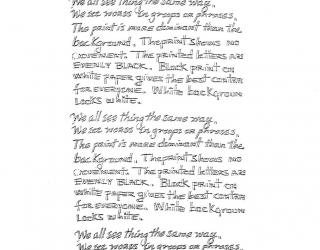 We all see thing the same way.
We see words in groups or phrases.
The print is more dominant than the
background. The print shows no
movement. The printed letters are
evenly black. Black print on
white paper gives the best contra
for everyone. White backgroun
looks white.
We all see thing the same way.
We see words in groups or phrases.
The print is more dominant than the
background. The print shows no
movement. The printed letters are
evenly black. Black print on
white paper gives the best contra
for everyone. White backgroun
looks white.
We all see thing the same way.
We see words in groups or phrases.